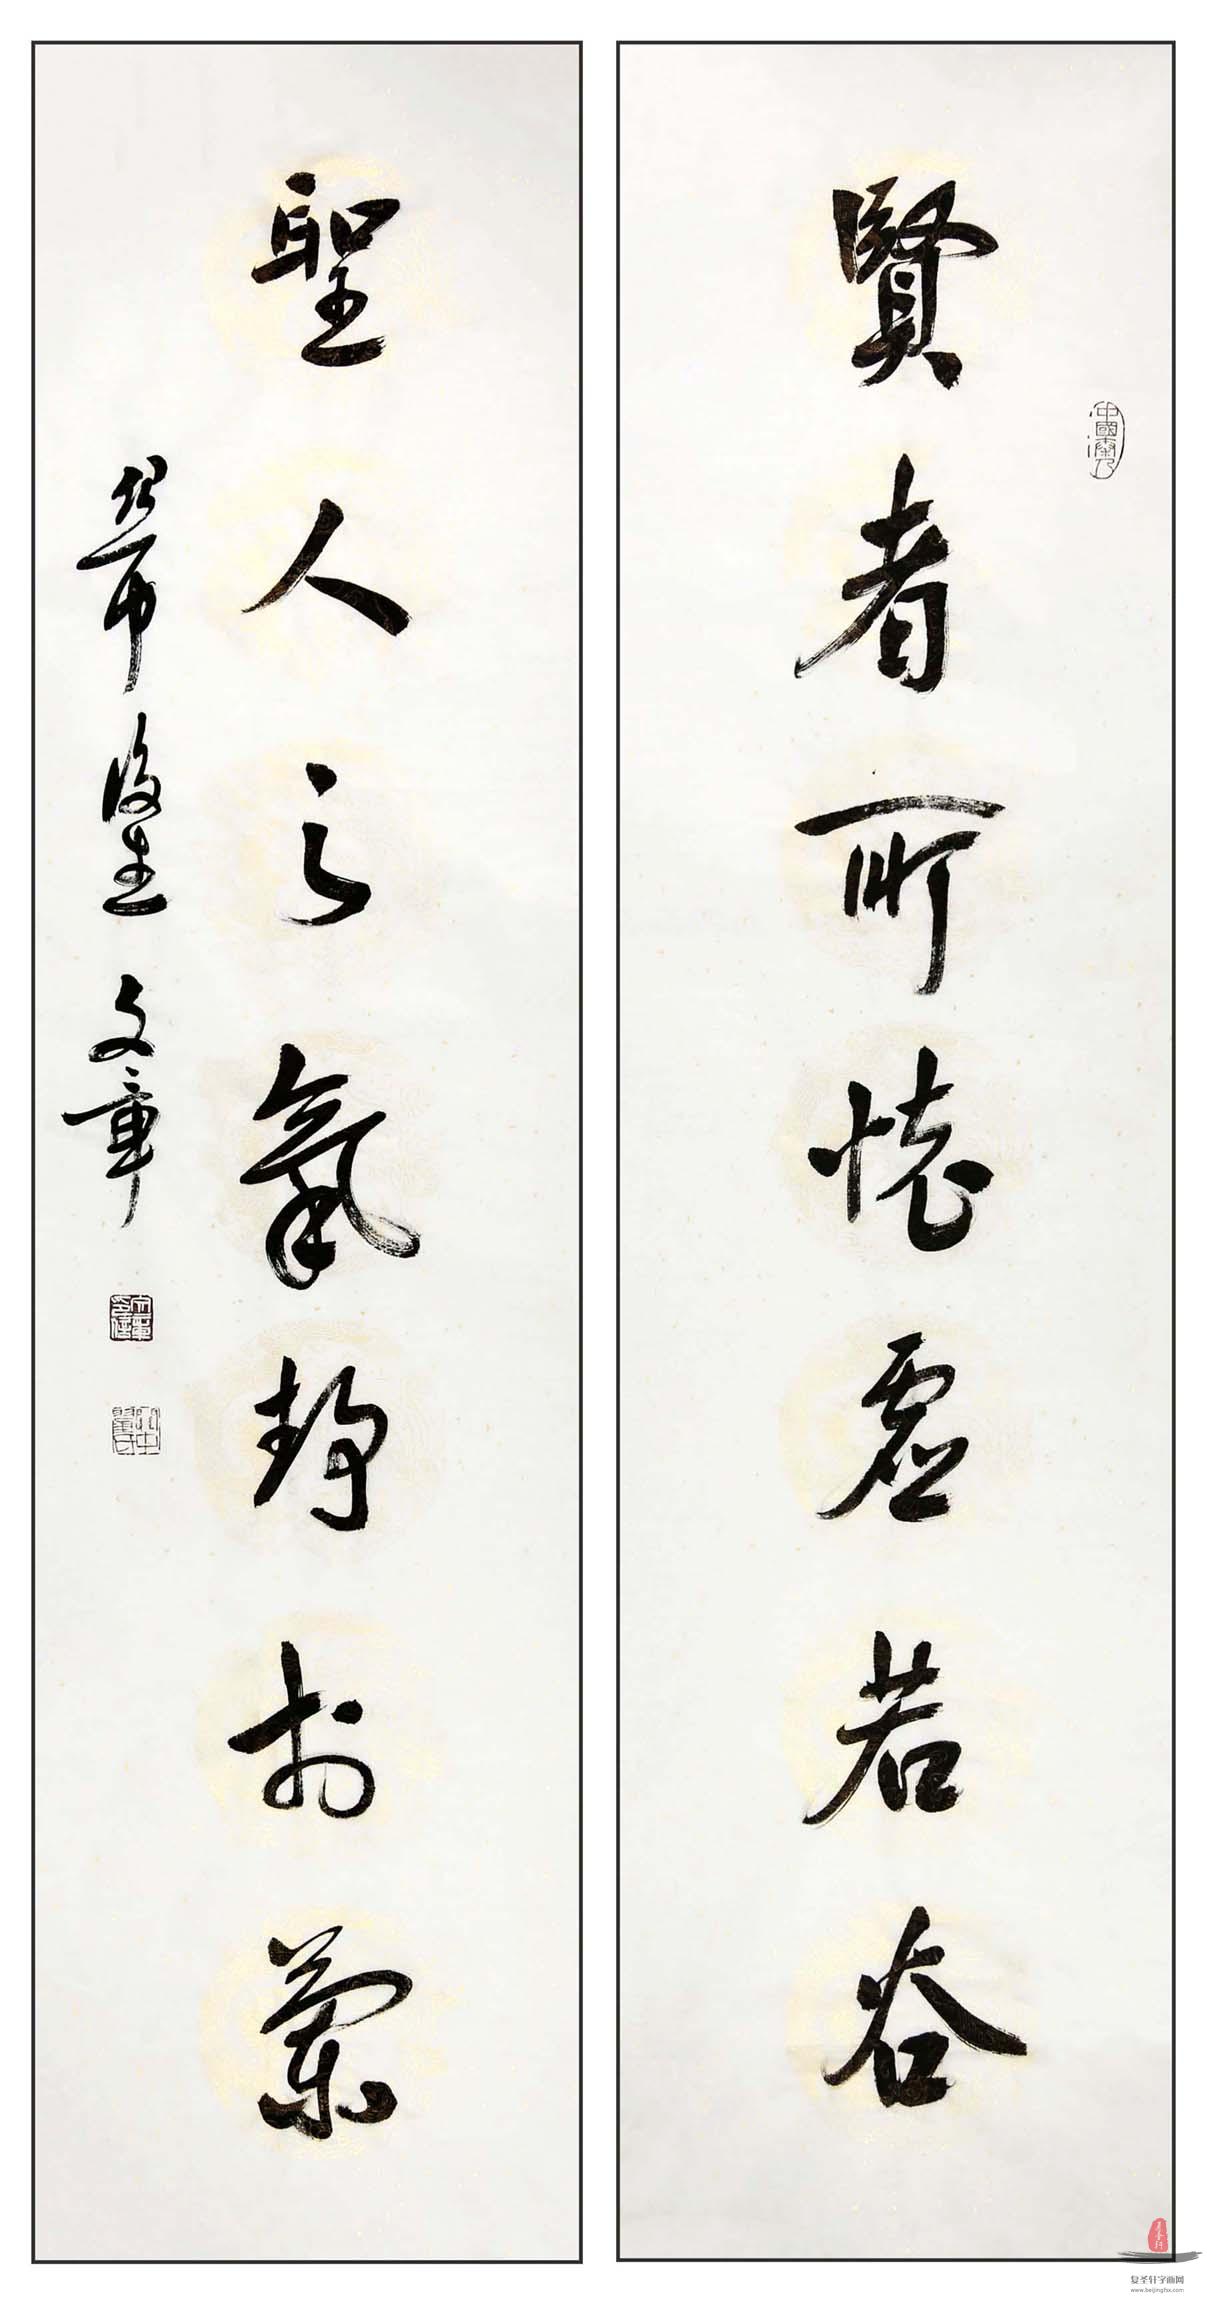 賢者所懷虛若谷
聖人之氣静於蘭
文章
中國
复圣轩字画网
www.beijingfsx.com